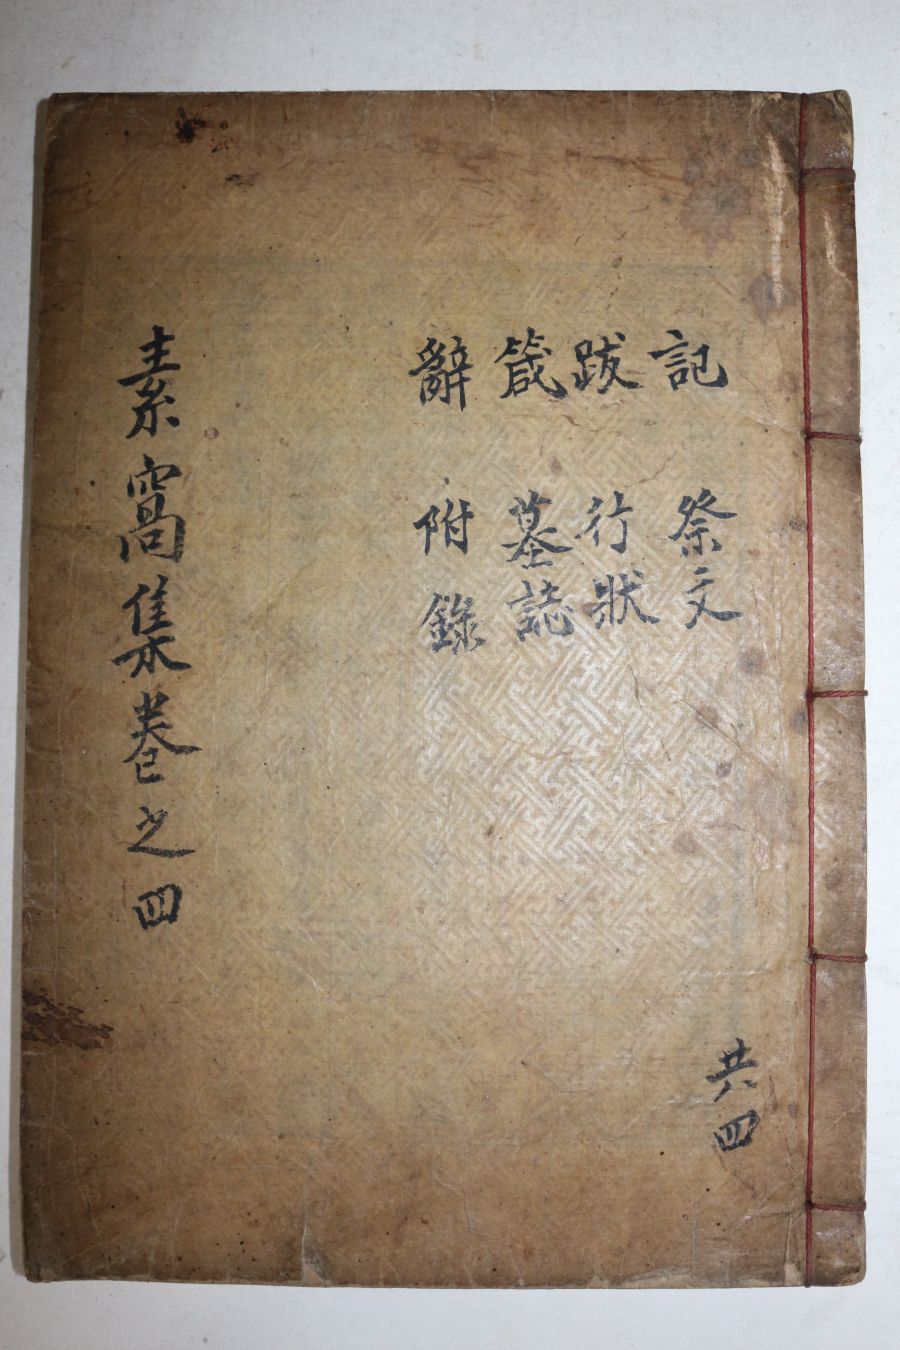 記 祭文
跋 行狀
箴 墓誌
辭 附錄
素窩集卷之四
共四